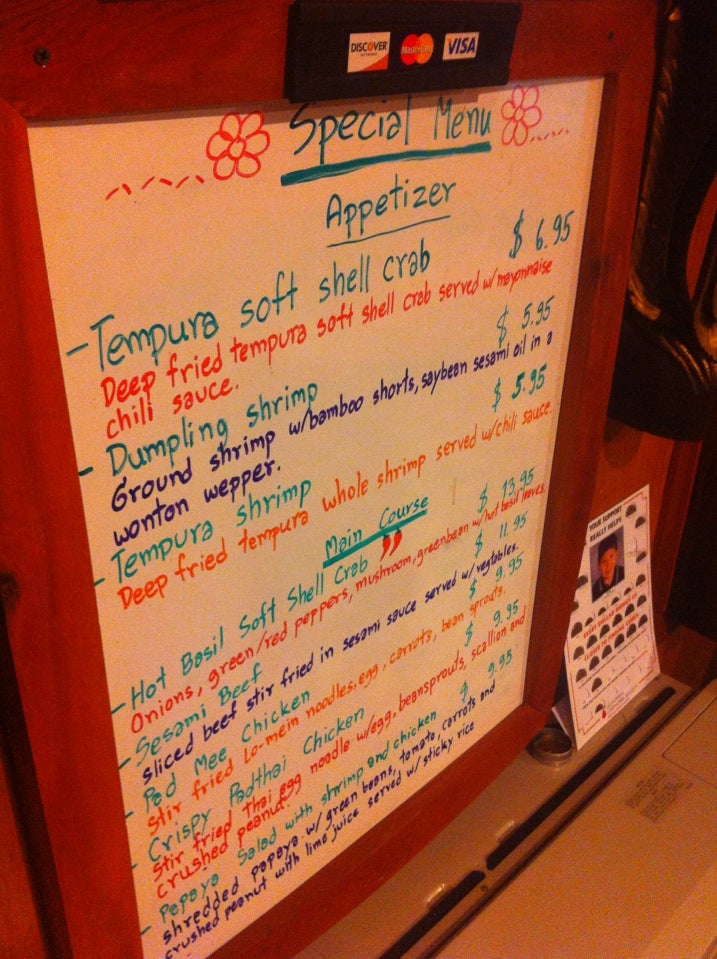 DISCOVER MasterCard VISA
Special Menu
Appetizer
- Tempura soft shell crab $ 6.95
Deep fried tempura soft shell crab served w/mayonnaise
chili sauce.
- Dumpling shrimp $ 5.95
Ground shrimp w/bamboo shorts, saybean sesami oil in a
wonton wepper.
- Tempura shrimp $ 5.95
Deep fried tempura whole shrimp served w/chili sauce.
Main Course
- Hot Basil Soft Shell Crab $ 13.95
Onions, green/red peppers, mushroom, greenbean w/hot basil leaves.
- Sesami Beef $ 11.95
sliced beef stir fried in sesami sauce served w/vegtables.
- Pad Mee Chicken $ 9.95
Stir fried Lo-mein noodles, egg, carrots, bean sprouts.
- Crispy Padthai Chicken $ 9.95
Stir fried thai egg noodle w/egg, beansprouts, scallion and
crushed peanut.
- Papaya Salad with shrimp and chicken $ 9.95
shredded papaya w/green beans, tomato, carrots and
crushed peanut with lime juice served w/sticky rice
YOUR SUPPORT
REALLY HELPS.